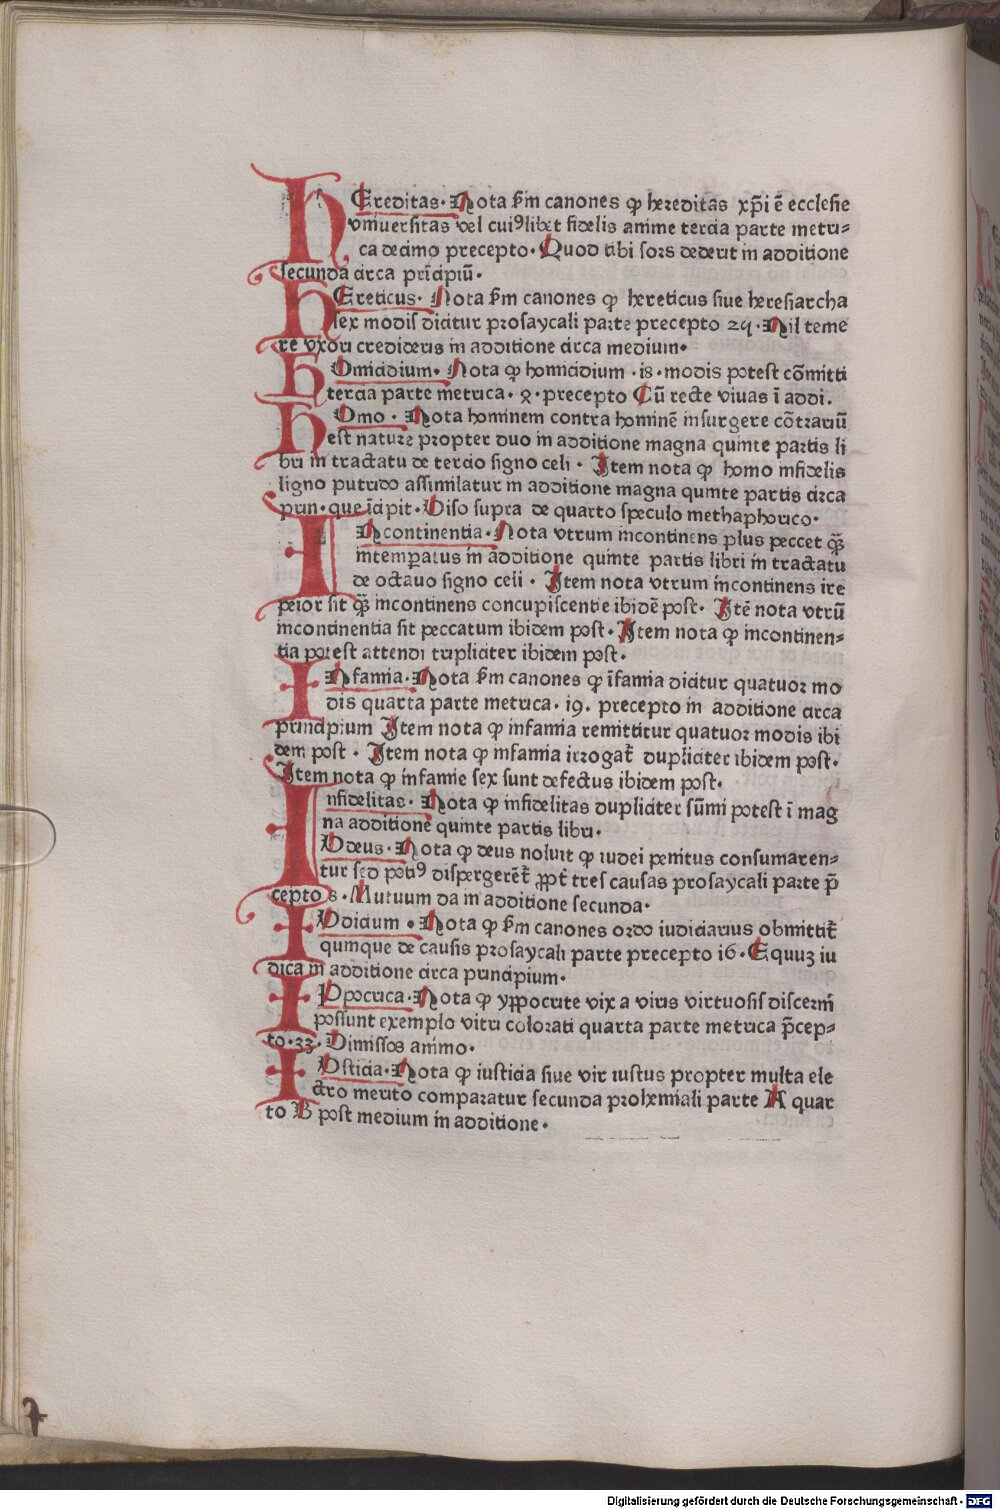 HEreditas. Nota ẜm canones ꝙ hereditas xp̄i ē ecclesie
vniuersitas vel cuiꝰlibet fidelis anime tercia parte metri=
ca decimo precepto. Quod tibi sors dederit in additione
secunda circa prīcipiū.
HEreticus. Nota ẜm canones ꝙ hereticus siue heresiarcha
sex modis dicitur prosaycali parte precepto 24. Nil teme
re vxori credideris in additione circa medium.
HOmicidium. Nota ꝙ homicidium .18. modis potest cōmitti
tercia parte metrica. 8. precepto Cū recte viuas ī addi.
HOmo. Nota hominem contra hominē insurgere cōtrariū
est nature propter duo in additione magna quinte partis li
bri in tractatu de tercio signo celi. Item nota ꝙ homo infidelis
ligno putrido assimilatur in additione magna quinte partis circa
prin. que īcipit. Viso supra de quarto speculo methaphorico.
INcontinentia. Nota vtrum incontinens plus peccet qͣ̄
intemperatus in additione quinte partis libri in tractatu
de octauo signo celi. Item nota vtrum incontinens ire
peior sit qͣ̄ incontinens concupiscentie ibidē post. Itē nota vtrū
incontinentia sit peccatum ibidem post. Item nota ꝙ incontinen=
tia potest attendi tripliciter ibidem post.
INfamia. Nota ẜm canones ꝙ īfamia dicitur quatuor mo
dis quarta parte metrica. 19. precepto in additione circa
principium Item nota ꝙ infamia remittitur quatuor modis ibi
dem post. Item nota ꝙ infamia irrogat̄ dupliciter ibidem post.
Item nota ꝙ infamie sex sunt defectus ibidem post.
Infidelitas. Nota ꝙ infidelitas dupliciter sūmi potest ī mag
na additione quinte partis libri.
IVdeus. Nota ꝙ deus noluit ꝙ iudei penitus consumaren=
tur sed potiꝰ dispergerēt̄ ꝓpt̄ tres causas prosaycali parte p̄
cepto 8. Mutuum da in additione secunda.
IVdicium. Nota ꝙ ẜm canones ordo iudiciarius obmittit̄
quinque de causis prosaycali parte precepto 16. Equuʒ iu
dica in additione circa principium.
IPpocrica. Nota ꝙ yppocrite vix a viris virtuosis discerni
possunt exemplo vitri colorati quarta parte metrica p̄cep=
to. 33. Dimissos animo.
IVsticia. Nota ꝙ iusticia siue vir iustus propter multa ele
ctro merito comparatur secunda prohemiali parte A quar
to B post medium in additione.
Digitalisierung gefördert durch die Deutsche Forschungsgemeinschaft - DFG